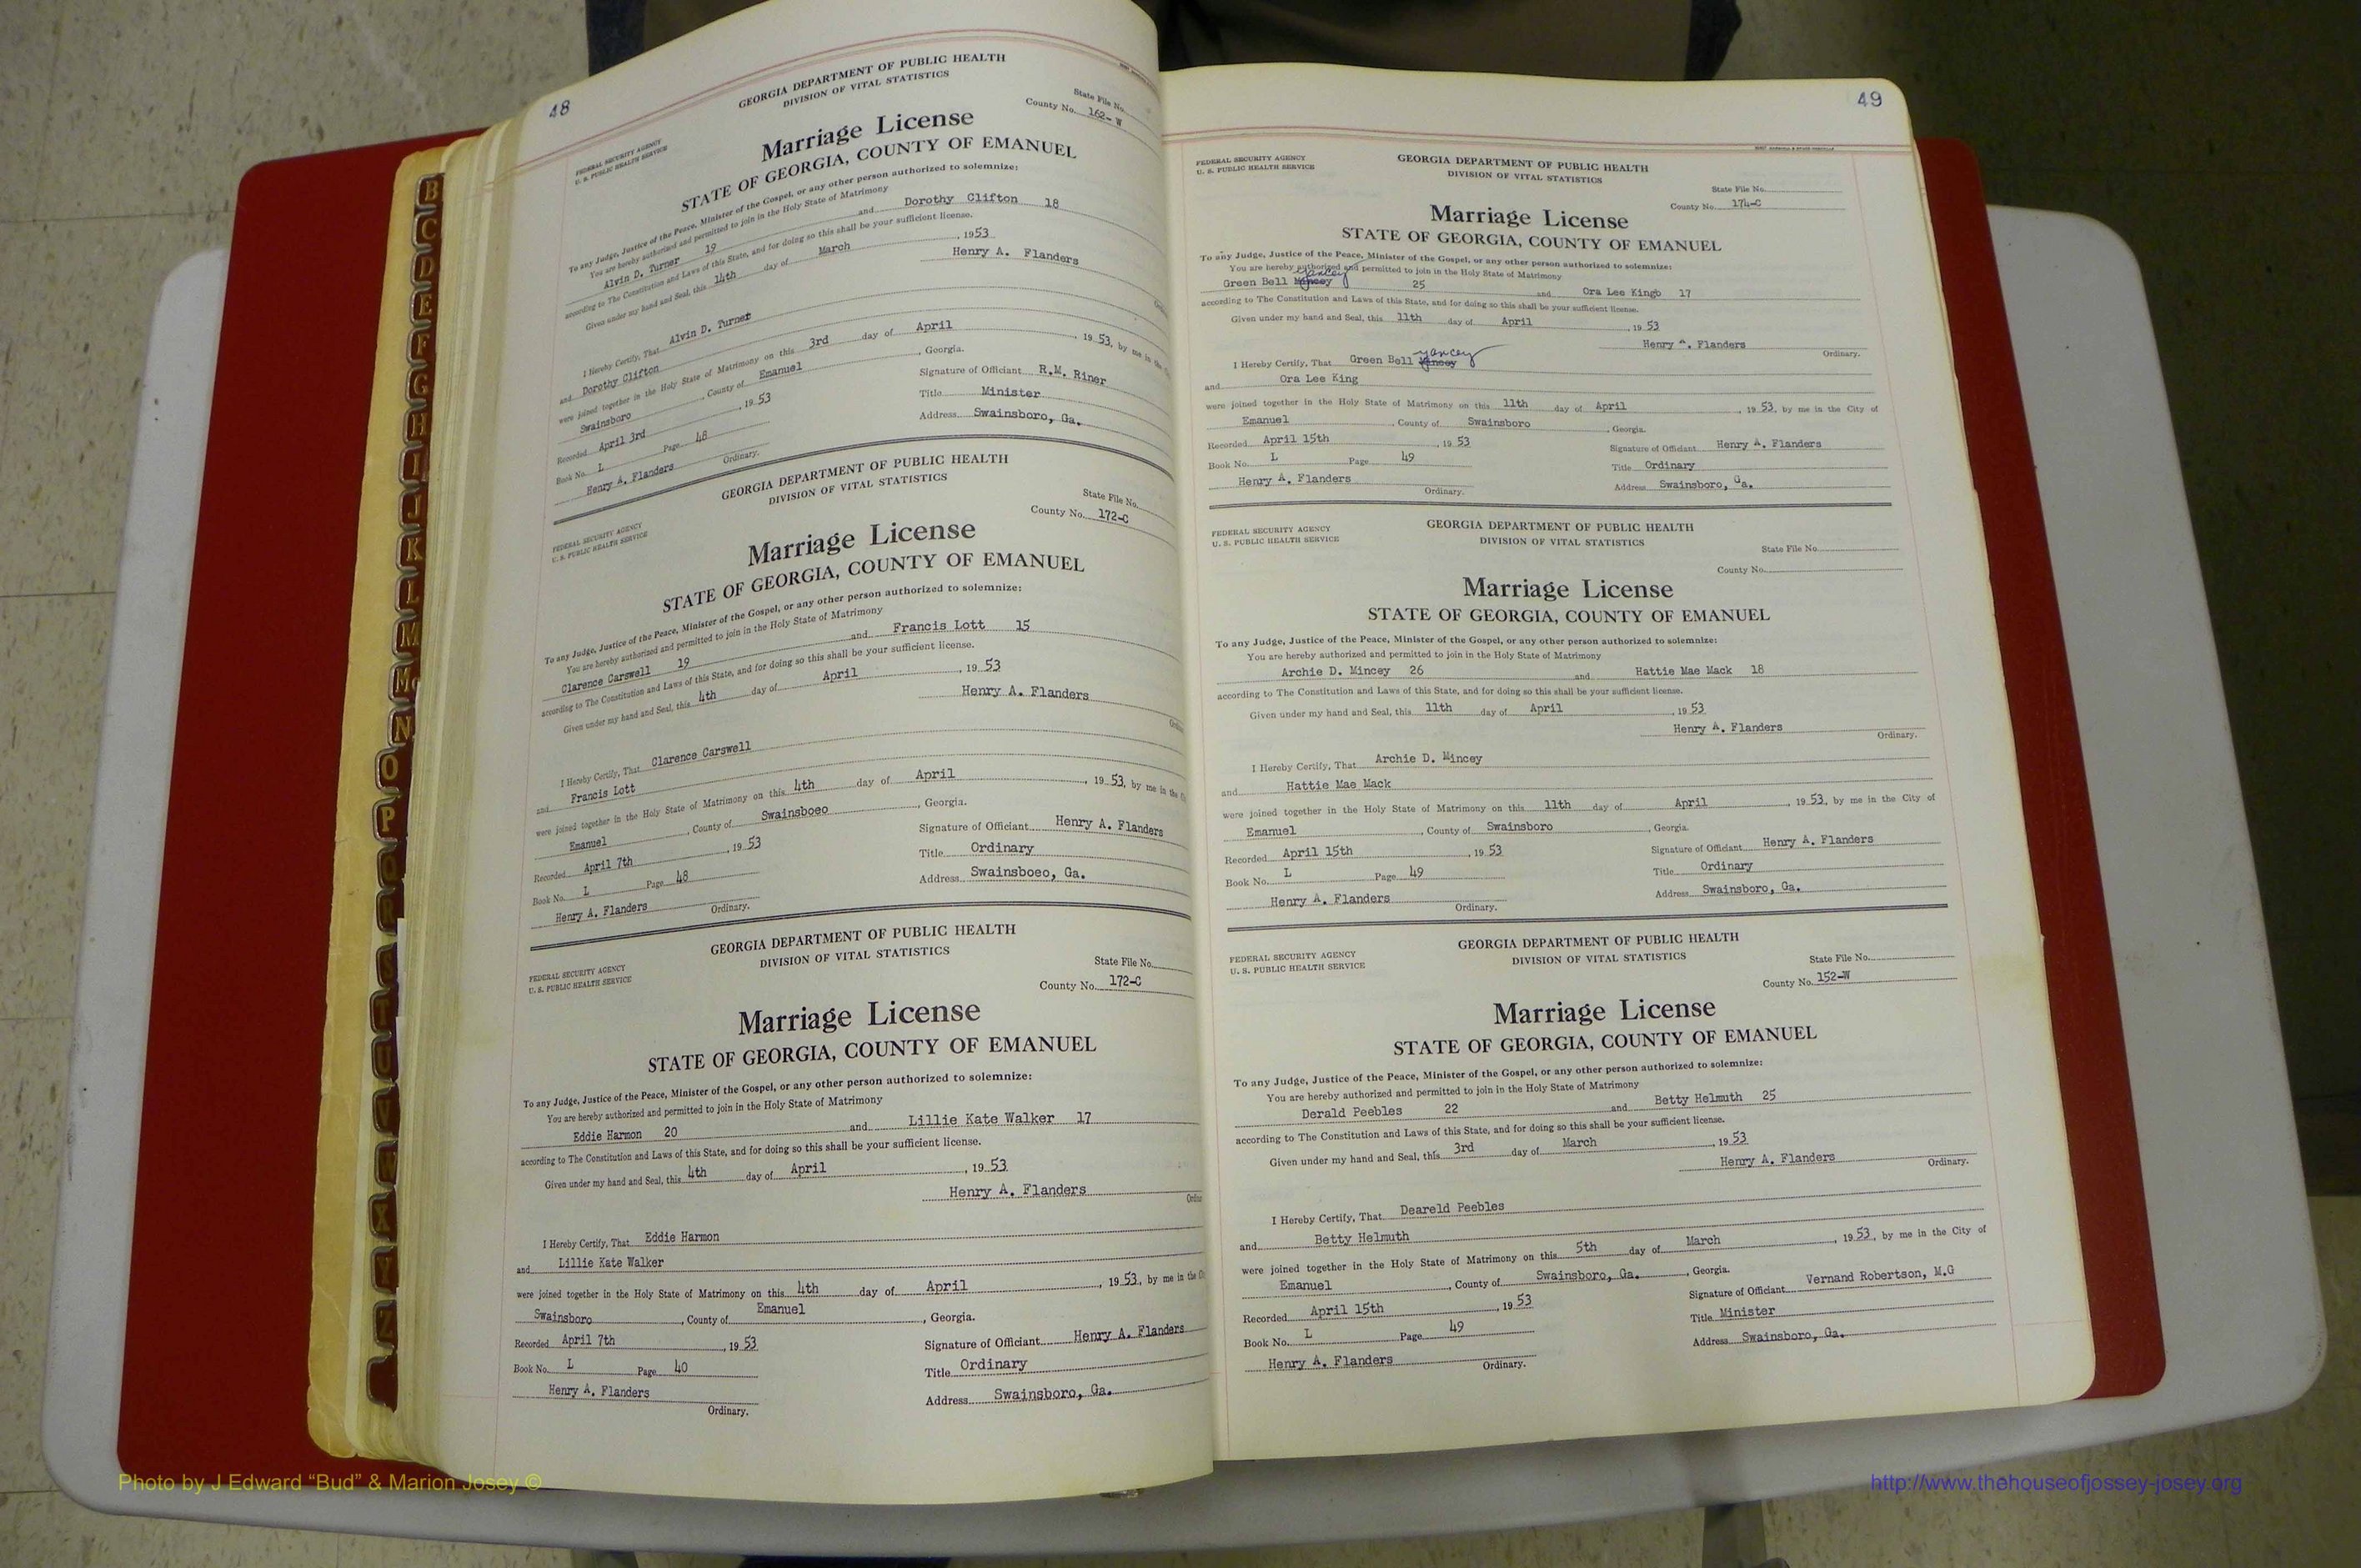 48
GEORGIA DEPARTMENT OF PUBLIC HEALTH
DIVISION OF VITAL STATISTICS
FEDERAL SECURITY AGENCY
U. S. PUBLIC HEALTH SERVICE
State File No.
County No. 162-W
Marriage License
STATE OF GEORGIA, COUNTY OF EMANUEL
To any Judge, Justice of the Peace, Minister of the Gospel, or any other person authorized to solemnize:
You are hereby authorized and permitted to join in the Holy State of Matrimony
Alvin D. Turner 19 and Dorothy Clifton 18
according to The Constitution and Laws of this State, and for doing so this shall be your sufficient license.
Given under my hand and Seal, this 14th day of March, 1953
Henry A. Flanders
I Hereby Certify, That Alvin D. Turner
and Dorothy Clifton
were joined together in the Holy State of Matrimony on this 3rd day of April, 1953, by me in the
Swainsboro, County of Emanuel, Georgia.
Recorded April 3rd, 1953
Signature of Officiant R.M. Riner
Book No. L Page 48
Title Minister
Henry A. Flanders
Ordinary.
Address Swainsboro, Ga.
GEORGIA DEPARTMENT OF PUBLIC HEALTH
DIVISION OF VITAL STATISTICS
FEDERAL SECURITY AGENCY
U. S. PUBLIC HEALTH SERVICE
State File No.
County No. 172-C
Marriage License
STATE OF GEORGIA, COUNTY OF EMANUEL
To any Judge, Justice of the Peace, Minister of the Gospel, or any other person authorized to solemnize:
You are hereby authorized and permitted to join in the Holy State of Matrimony
Clarence Carswell 19 and Francis Lott 15
according to The Constitution and Laws of this State, and for doing so this shall be your sufficient license.
Given under my hand and Seal, this 4th day of April, 1953
Henry A. Flanders
I Hereby Certify, That Clarence Carswell
and Francis Lott
were joined together in the Holy State of Matrimony on this 4th day of April, 1953, by me in the
Emanuel, County of Swainsboeo, Georgia.
Recorded April 7th, 1953
Signature of Officiant Henry A. Flanders
Book No. L Page 48
Title Ordinary
Henry A. Flanders
Ordinary.
Address Swainsboeo, Ga.
GEORGIA DEPARTMENT OF PUBLIC HEALTH
DIVISION OF VITAL STATISTICS
FEDERAL SECURITY AGENCY
U. S. PUBLIC HEALTH SERVICE
State File No.
County No. 172-C
Marriage License
STATE OF GEORGIA, COUNTY OF EMANUEL
To any Judge, Justice of the Peace, Minister of the Gospel, or any other person authorized to solemnize:
You are hereby authorized and permitted to join in the Holy State of Matrimony
Eddie Harmon 20 and Lillie Kate Walker 17
according to The Constitution and Laws of this State, and for doing so this shall be your sufficient license.
Given under my hand and Seal, this 4th day of April, 1953
Henry A. Flanders
I Hereby Certify, That Eddie Harmon
and Lillie Kate Walker
were joined together in the Holy State of Matrimony on this 4th day of April, 1953, by me in the
Swainsboro, County of Emanuel, Georgia.
Recorded April 7th, 1953
Signature of Officiant Henry A. Flanders
Book No. L Page 40
Title Ordinary
Henry A. Flanders
Ordinary.
Address Swainsboro, Ga.
49
FEDERAL SECURITY AGENCY
U. S. PUBLIC HEALTH SERVICE
GEORGIA DEPARTMENT OF PUBLIC HEALTH
DIVISION OF VITAL STATISTICS
State File No.
County No. 174-C
Marriage License
STATE OF GEORGIA, COUNTY OF EMANUEL
To any Judge, Justice of the Peace, Minister of the Gospel, or any other person authorized to solemnize:
You are hereby authorized and permitted to join in the Holy State of Matrimony
Green Bell Yancey 25 and Ora Lee Kingb 17
according to The Constitution and Laws of this State, and for doing so this shall be your sufficient license.
Given under my hand and Seal, this 11th day of April, 1953
Henry A. Flanders
Ordinary.
I Hereby Certify, That Green Bell Yancey
and Ora Lee King
were joined together in the Holy State of Matrimony on this 11th day of April, 1953, by me in the City of
Emanuel, County of Swainsboro, Georgia.
Recorded April 15th, 1953
Signature of Officiant Henry A. Flanders
Book No. L Page 49
Title Ordinary
Henry A. Flanders
Ordinary.
Address Swainsboro, Ga.
FEDERAL SECURITY AGENCY
U. S. PUBLIC HEALTH SERVICE
GEORGIA DEPARTMENT OF PUBLIC HEALTH
DIVISION OF VITAL STATISTICS
State File No.
County No.
Marriage License
STATE OF GEORGIA, COUNTY OF EMANUEL
To any Judge, Justice of the Peace, Minister of the Gospel, or any other person authorized to solemnize:
You are hereby authorized and permitted to join in the Holy State of Matrimony
Archie D. Mincey 26 and Hattie Mae Mack 18
according to The Constitution and Laws of this State, and for doing so this shall be your sufficient license.
Given under my hand and Seal, this 11th day of April, 1953
Henry A. Flanders
Ordinary.
I Hereby Certify, That Archie D. Mincey
and Hattie Mae Mack
were joined together in the Holy State of Matrimony on this 11th day of April, 1953, by me in the City of
Emanuel, County of Swainsboro, Georgia.
Recorded April 15th, 1953
Signature of Officiant Henry A. Flanders
Book No. L Page 49
Title Ordinary
Henry A. Flanders
Ordinary.
Address Swainsboro, Ga.
FEDERAL SECURITY AGENCY
U. S. PUBLIC HEALTH SERVICE
GEORGIA DEPARTMENT OF PUBLIC HEALTH
DIVISION OF VITAL STATISTICS
State File No.
County No. 152-W
Marriage License
STATE OF GEORGIA, COUNTY OF EMANUEL
To any Judge, Justice of the Peace, Minister of the Gospel, or any other person authorized to solemnize:
You are hereby authorized and permitted to join in the Holy State of Matrimony
Derald Peebles 22 and Betty Helmuth 25
according to The Constitution and Laws of this State, and for doing so this shall be your sufficient license.
Given under my hand and Seal, this 3rd day of March, 1953
Henry A. Flanders
Ordinary.
I Hereby Certify, That Deareld Peebles
and Betty Helmuth
were joined together in the Holy State of Matrimony on this 5th day of March, 1953, by me in the City of
Emanuel, County of Swainsboro, Ga., Georgia.
Recorded April 15th, 1953
Signature of Officiant Vernand Robertson, M.G
Book No. L Page 49
Title Minister
Henry A. Flanders
Ordinary.
Address Swainsboro, Ga.
B
C
D
E
F
G
H
I
J
K
L
M
Mc
N
O
P
Q
R
S
T
U
V
W
X
Y
Z
Photo by J Edward “Bud” & Marion Josey ©
http://www.thehouseofjossey-josey.org